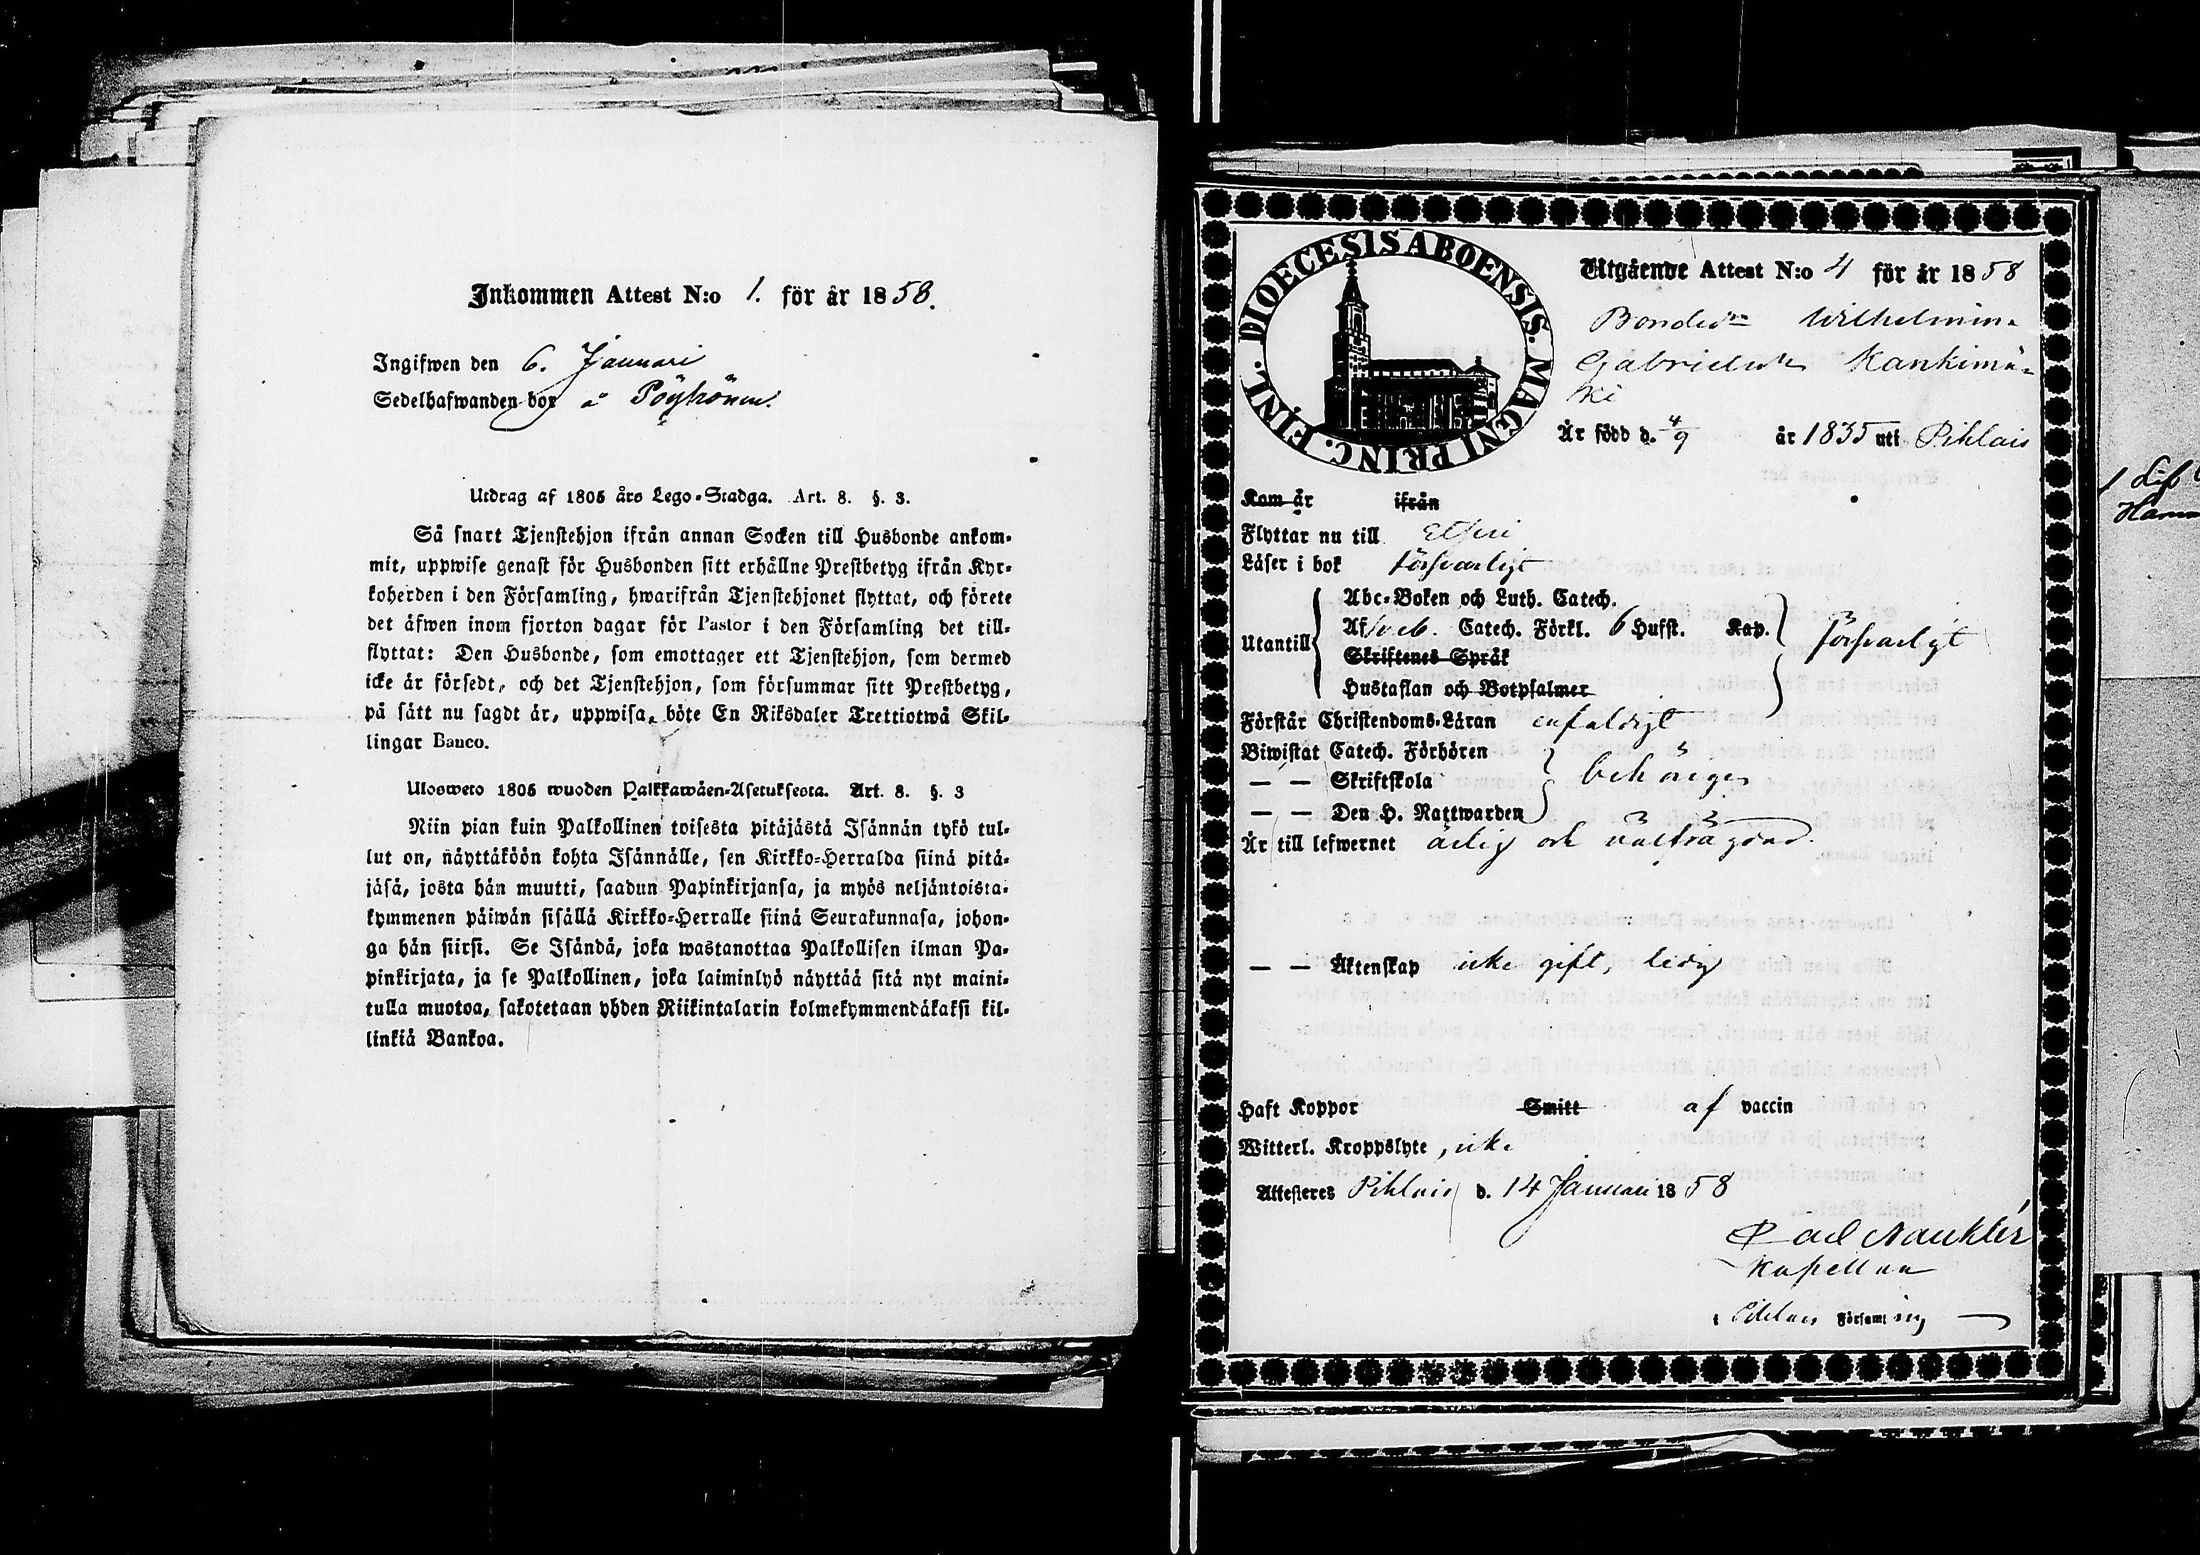 Inkommen Attest N:o 1. för år 1858.
Ingifwen den 6. Januari
Sedelhafwanden bor å Pöyhönen.
Utdrag af 1805 års Lego-Stadga. Art. 8. §. 3.
Så snart Tjenstehjon ifrån annan Socken till Husbonde ankom-
mit, uppwise genast för Husbonden sitt erhållne Prestbetyg ifrån Kyr-
koherden i den Församling, hwarifrån Tjenstehjonet flyttat, och förete
det äfwen inom fjorton dagar för Pastor i den Församling det till-
flyttat: Den Husbonde, som emottager ett Tjenstehjon, som dermed
icke är försedt, och det Tjenstehjon, som försummar sitt Prestbetyg,
på sätt nu sagdt är, uppwisa, böte En Riksdaler Trettiotwå Skil-
lingar Banco.
Ulosweto 1805 wuoden Palkkawäen-Asetuksesta. Art. 8. §. 3
Niin pian kuin Palkollinen toisesta pitäjästä Isännän tykö tul-
lut on, näyttäköön kohta Isännälle, sen Kirkko-Herralda siinä pitä-
jäsä, josta hän muutti, saadun Papinkirjansa, ja myös neljäntoista-
kymmenen päiwän sisällä Kirkko-Herralle siinä Seurakunnasa, johon-
ga hän siirsi. Se Isändä, joka wastanottaa Palkollisen ilman Pa-
pinkirjata, ja se Palkollinen, joka laiminlyö näyttää sitä nyt maini-
tulla muotoa, sakotetaan yhden Riikintalarin kolmekymmendäkaksi kil-
linkiä Bankoa.
DIOECESIS ABOENSIS. MAGNI PRINC. FINL.
Utgående Attest N:o 4 för år 1858
Bonded:n Wilhelmina
Gabrielsdr Kankimä-
ki
Är född d. 4/9 år 1835 uti Pihlais
Kom år ifrån
Flyttar nu till Etseri
Läser i bok försvarligt
Abc-Boken och Luth. Catech.
Af Sveb. Catech. Förkl. 6 Hufst. Kap.
Utantill försvarligt
Skriftenes Språk
Hustaflan och Botpsalmer
Förstår Christendoms-Läran enfaldigt
Biwistat Catech. Förhören
— — Skriftskola behörigen
— — Den H. Nattwarden
Är till lefwernet ärlig och välfrägdad.
— — Äktenskap icke gift, ledig
Haft Koppor Smitt af vaccin
Witterl. Kroppslyte, icke
Attesteres Pihlais d. 14 Januari 1858
Carl Nauklér
Kapellan
i Pihlais Församling